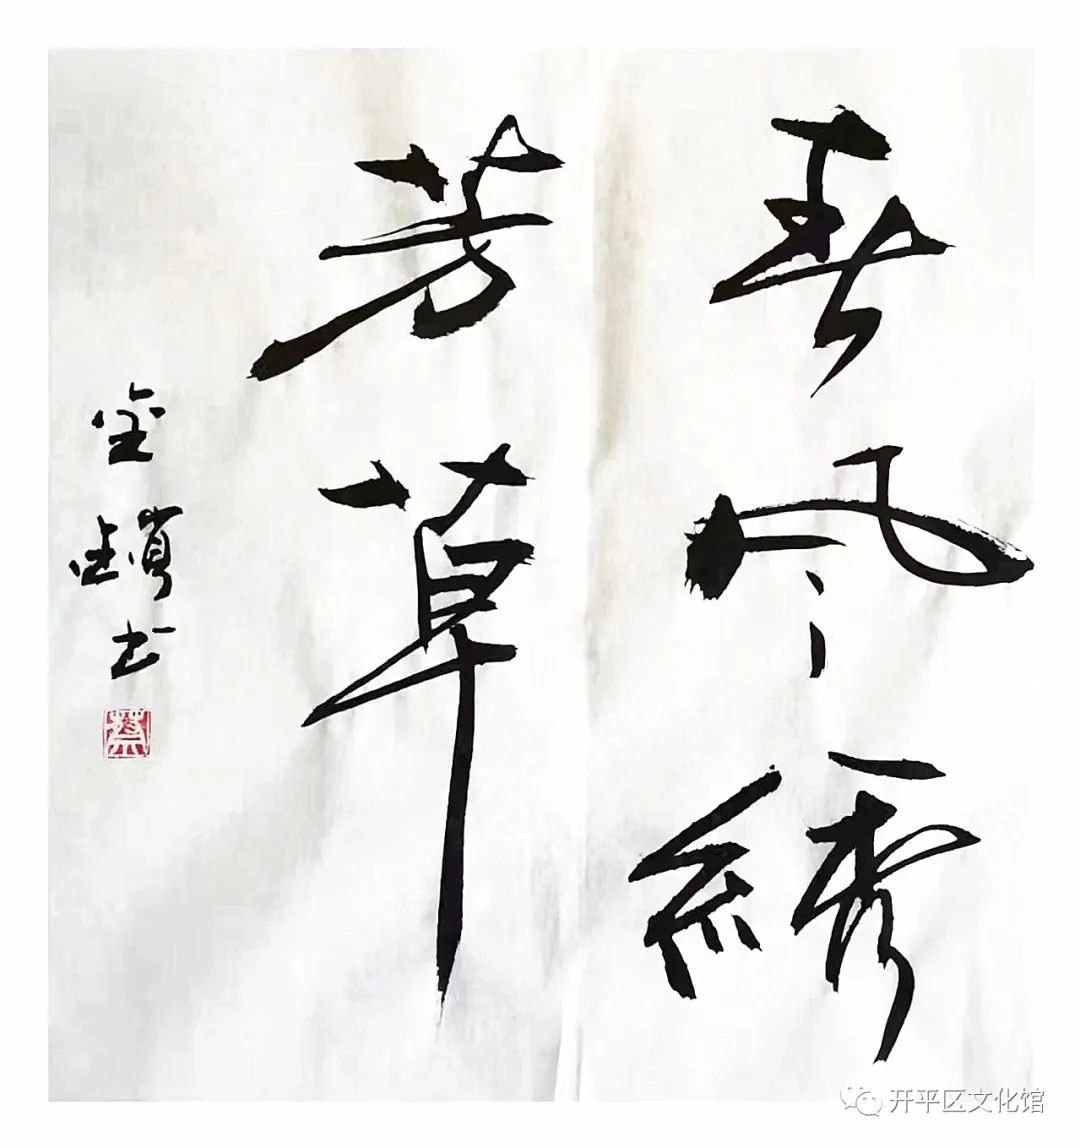 春风繡
芳草
金鎮书
开平区文化馆